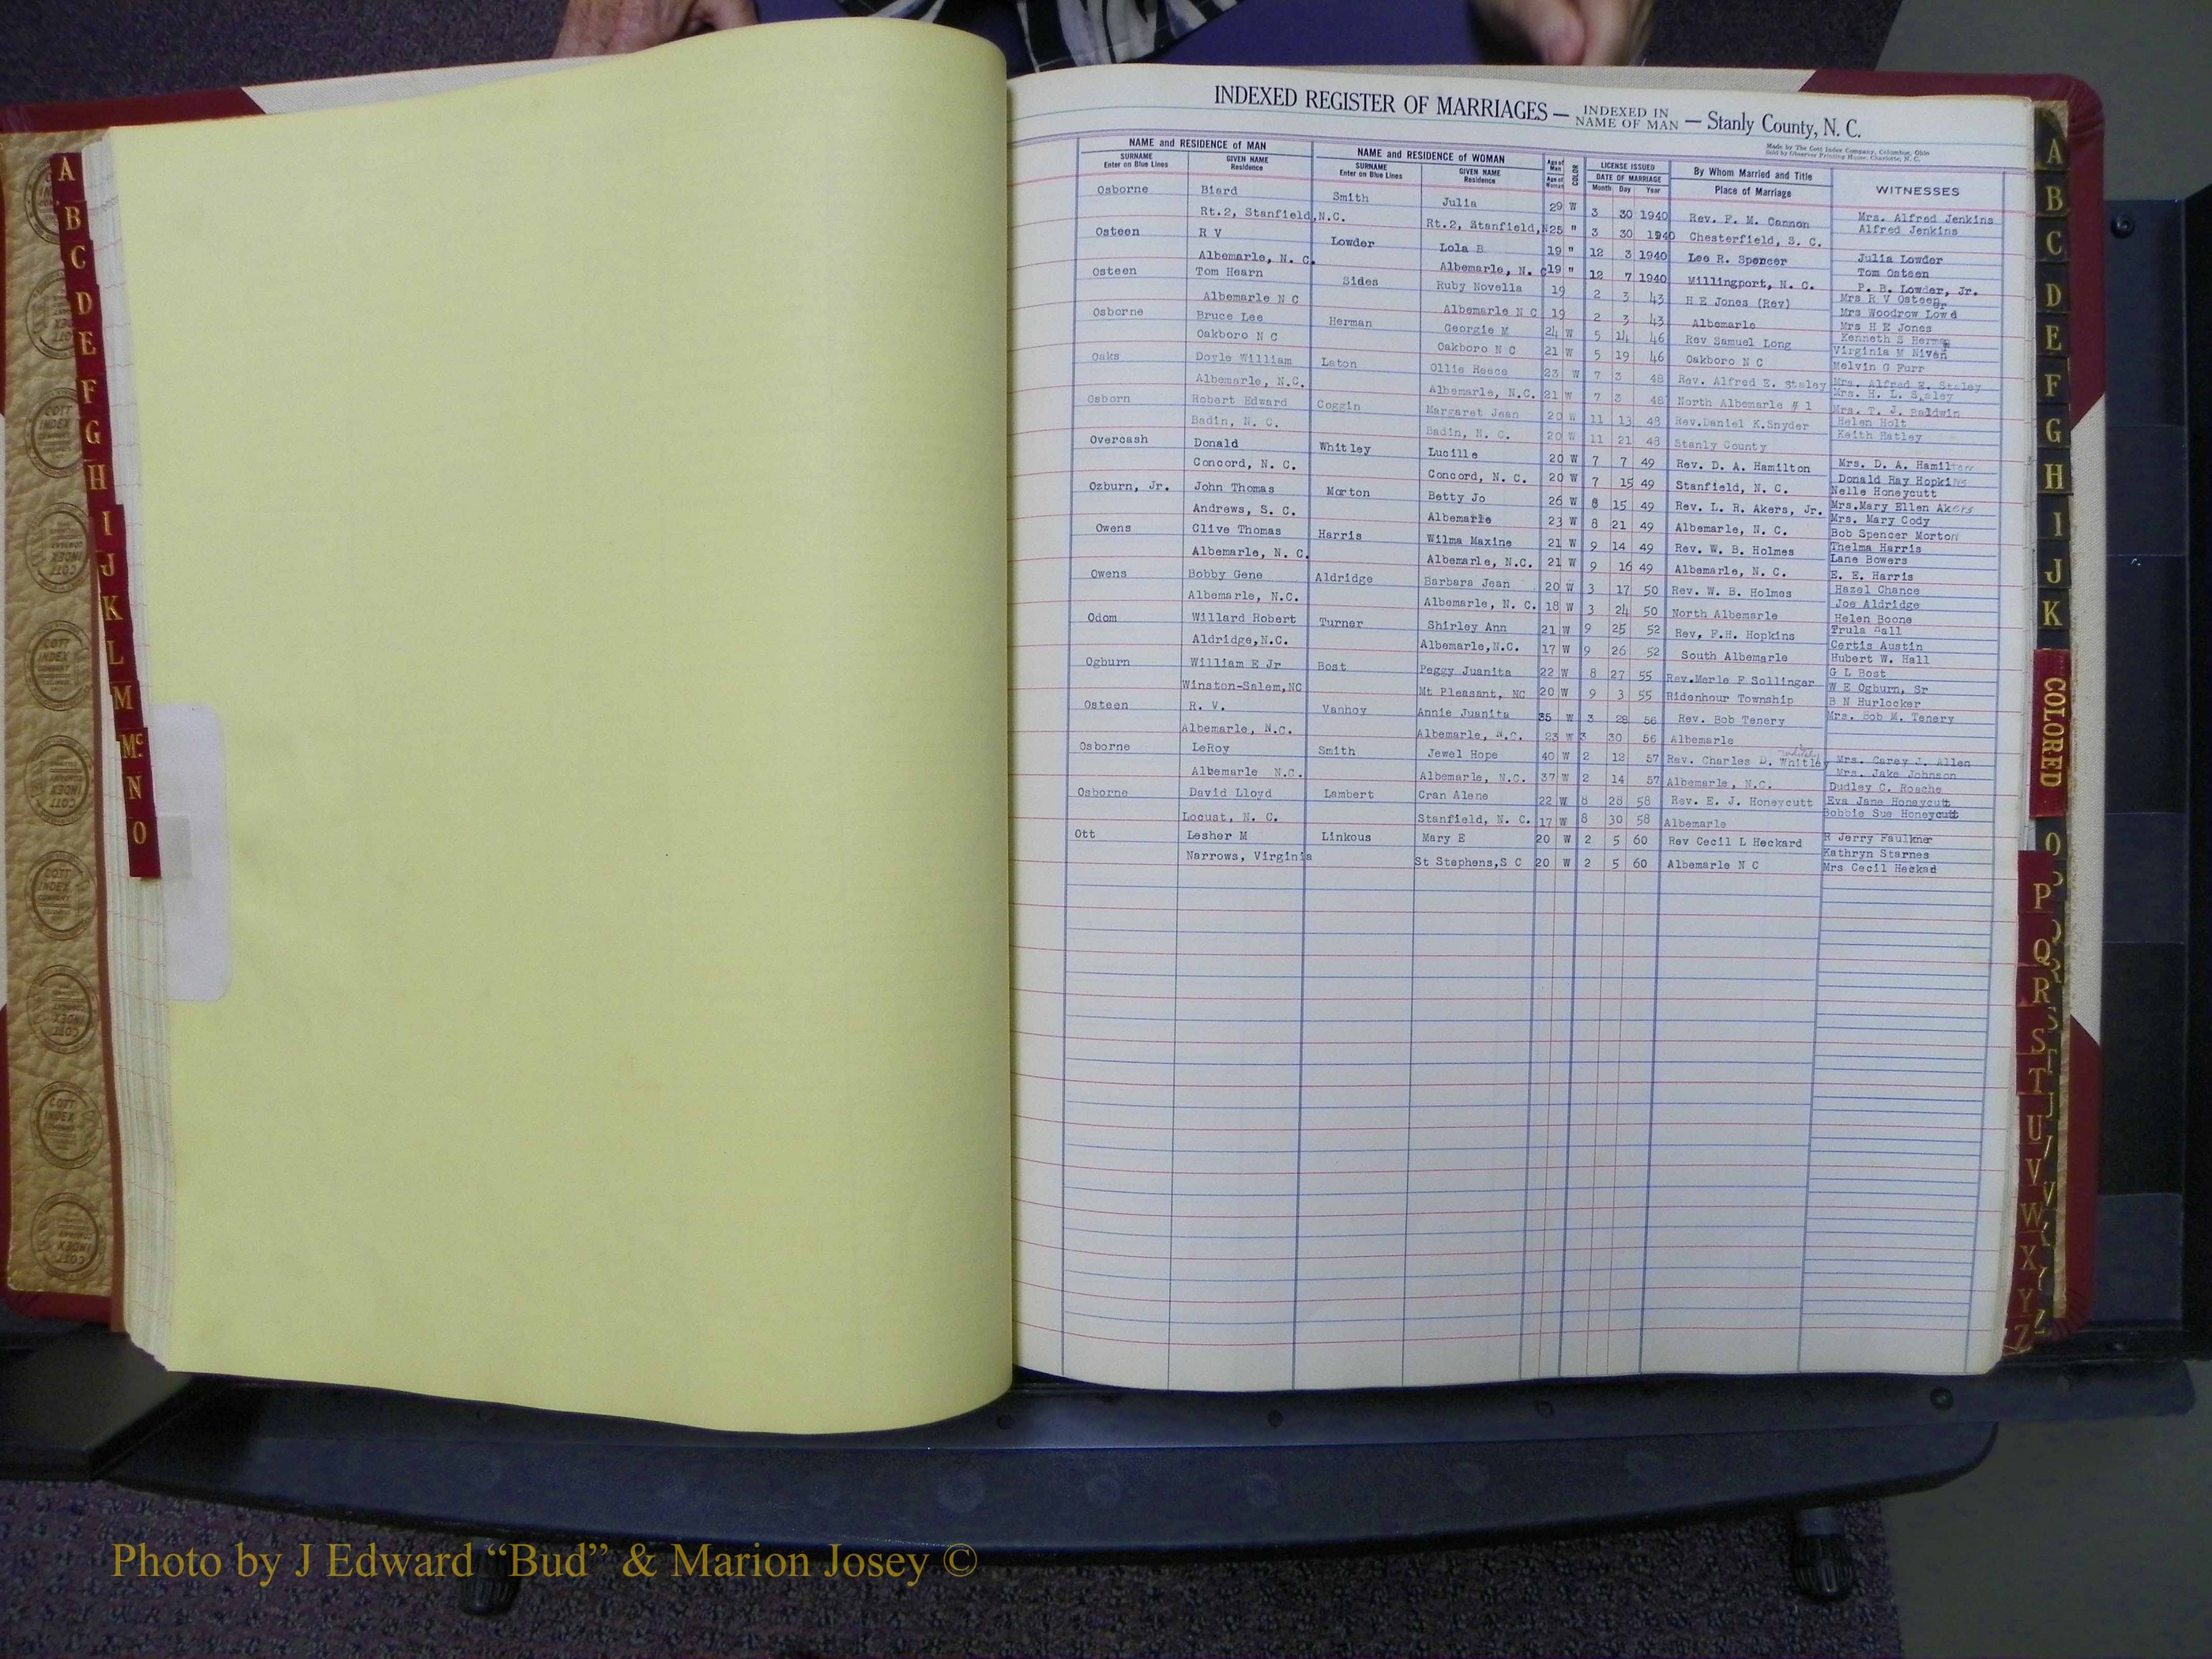 INDEXED REGISTER OF MARRIAGES — INDEXED IN NAME OF MAN — Stanly County, N. C.
Made by The Cott Index Company, Columbus, Ohio
Sold by Observer Printing House, Charlotte, N. C.
NAME and RESIDENCE of MAN NAME and RESIDENCE of WOMAN Age of Man COLOR LICENSE ISSUED By Whom Married and Title WITNESSES
SURNAME Enter on Blue Lines GIVEN NAME Residence SURNAME Enter on Blue Lines GIVEN NAME Residence Age of Woman DATE OF MARRIAGE Month Day Year Place of Marriage
Osborne Biard Smith Julia 29 W 3 30 1940 Rev. F. M. Cannon Mrs. Alfred Jenkins
Rt.2, Stanfield, N.C. Rt.2, Stanfield, N 25 " 3 30 1940 Chesterfield, S. C. Alfred Jenkins
Osteen R V Lowder Lola B 19 " 12 3 1940 Lee R. Spencer Julia Lowder
Albemarle, N. C. Albemarle, N. C 19 " 12 7 1940 Millingport, N. C. Tom Osteen
P. B. Lowder, Jr.
Osteen Tom Hearn Sides Ruby Novella 19 2 3 43 H E Jones (Rev) Mrs R V Osteen
Albemarle N C Albemarle N C 19 2 3 43 Albemarle Mrs Woodrow Lowder
Mrs H E Jones
Osborne Bruce Lee Herman Georgie M 24 W 5 14 46 Rev Samuel Long Kenneth S Herman
Oakboro N C Oakboro N C 21 W 5 19 46 Oakboro N C Virginia M Niven
Melvin G Furr
Oaks Doyle William Laton Ollie Reece 23 W 7 3 48 Rev. Alfred E. Staley Mrs. Alfred E. Staley
Albemarle, N.C. Albemarle, N.C. 21 W 7 3 48 North Albemarle # 1 Mrs. H. L. Staley
Mrs. T. J. Baldwin
Osborn Robert Edward Coggin Margaret Jean 20 W 11 13 48 Rev.Daniel K.Snyder Helen Holt
Badin, N. C. Badin, N. C. 20 W 11 21 48 Stanly County Keith Hatley
Overcash Donald Whitley Lucille 20 W 7 7 49 Rev. D. A. Hamilton Mrs. D. A. Hamilton
Concord, N. C. Concord, N. C. 20 W 7 15 49 Stanfield, N. C. Donald Ray Hopkins
Nelle Honeycutt
Ozburn, Jr. John Thomas Morton Betty Jo 26 W 8 15 49 Rev. L. R. Akers, Jr. Mrs.Mary Ellen Akers
Andrews, S. C. Albemarle 23 W 8 21 49 Albemarle, N. C. Mrs. Mary Cody
Bob Spencer Morton
Owens Clive Thomas Harris Wilma Maxine 21 W 9 14 49 Rev. W. B. Holmes Thelma Harris
Albemarle, N. C. Albemarle, N.C. 21 W 9 16 49 Albemarle, N. C. Lane Bowers
E. E. Harris
Owens Bobby Gene Aldridge Barbara Jean 20 W 3 17 50 Rev. W. B. Holmes Hazel Chance
Albemarle, N.C. Albemarle, N. C. 18 W 3 24 50 North Albemarle Joe Aldridge
Helen Boone
Odom Willard Robert Turner Shirley Ann 21 W 9 25 52 Rev, F.H. Hopkins Trula Hall
Aldridge,N.C. Albemarle,N.C. 17 W 9 26 52 South Albemarle Certis Austin
Hubert W. Hall
Ogburn William E Jr Bost Peggy Juanita 22 W 8 27 55 Rev.Marle F Sollinger G L Bost
Winston-Salem,NC Mt Pleasant, NC 20 W 9 3 55 Ridenhour Township W E Ogburn, Sr
B N Hurlocker
Osteen R. V. Vanhoy Annie Juanita 35 W 3 28 56 Rev. Bob Tenery Mrs. Bob M. Tenery
Albemarle, N.C. Albemarle, N.C. 23 W 3 30 56 Albemarle
Osborne LeRoy Smith Jewel Hope 40 W 2 12 57 Rev. Charles D. Whitley Mrs. Carey J. Allen
Albemarle N.C. Albemarle, N.C. 37 W 2 14 57 Albemarle, N.C. Mrs. Jake Johnson
Dudley C. Roache
Osborne David Lloyd Lambert Cran Alene 22 W 8 28 58 Rev. E. J. Honeycutt Eva Jane Honeycutt
Locust, N. C. Stanfield, N. C. 17 W 8 30 58 Albemarle Bobbie Sue Honeycutt
Ott Lesher M Linkous Mary E 20 W 2 5 60 Rev Cecil L Heckard R Jerry Faulkner
Narrows, Virginia St Stephens,S C 20 W 2 5 60 Albemarle N C Kathryn Starnes
Mrs Cecil Heckad
A
B
C
D
E
F
G
H
I
J
K
L
M
Mc
N
O
A
B
C
D
E
F
G
H
I
J
K
COLORED
O
P
Q
R
S
T
U
V
W
X
Y
Z
COTT INDEX COMPANY
Photo by J Edward “Bud” & Marion Josey ©